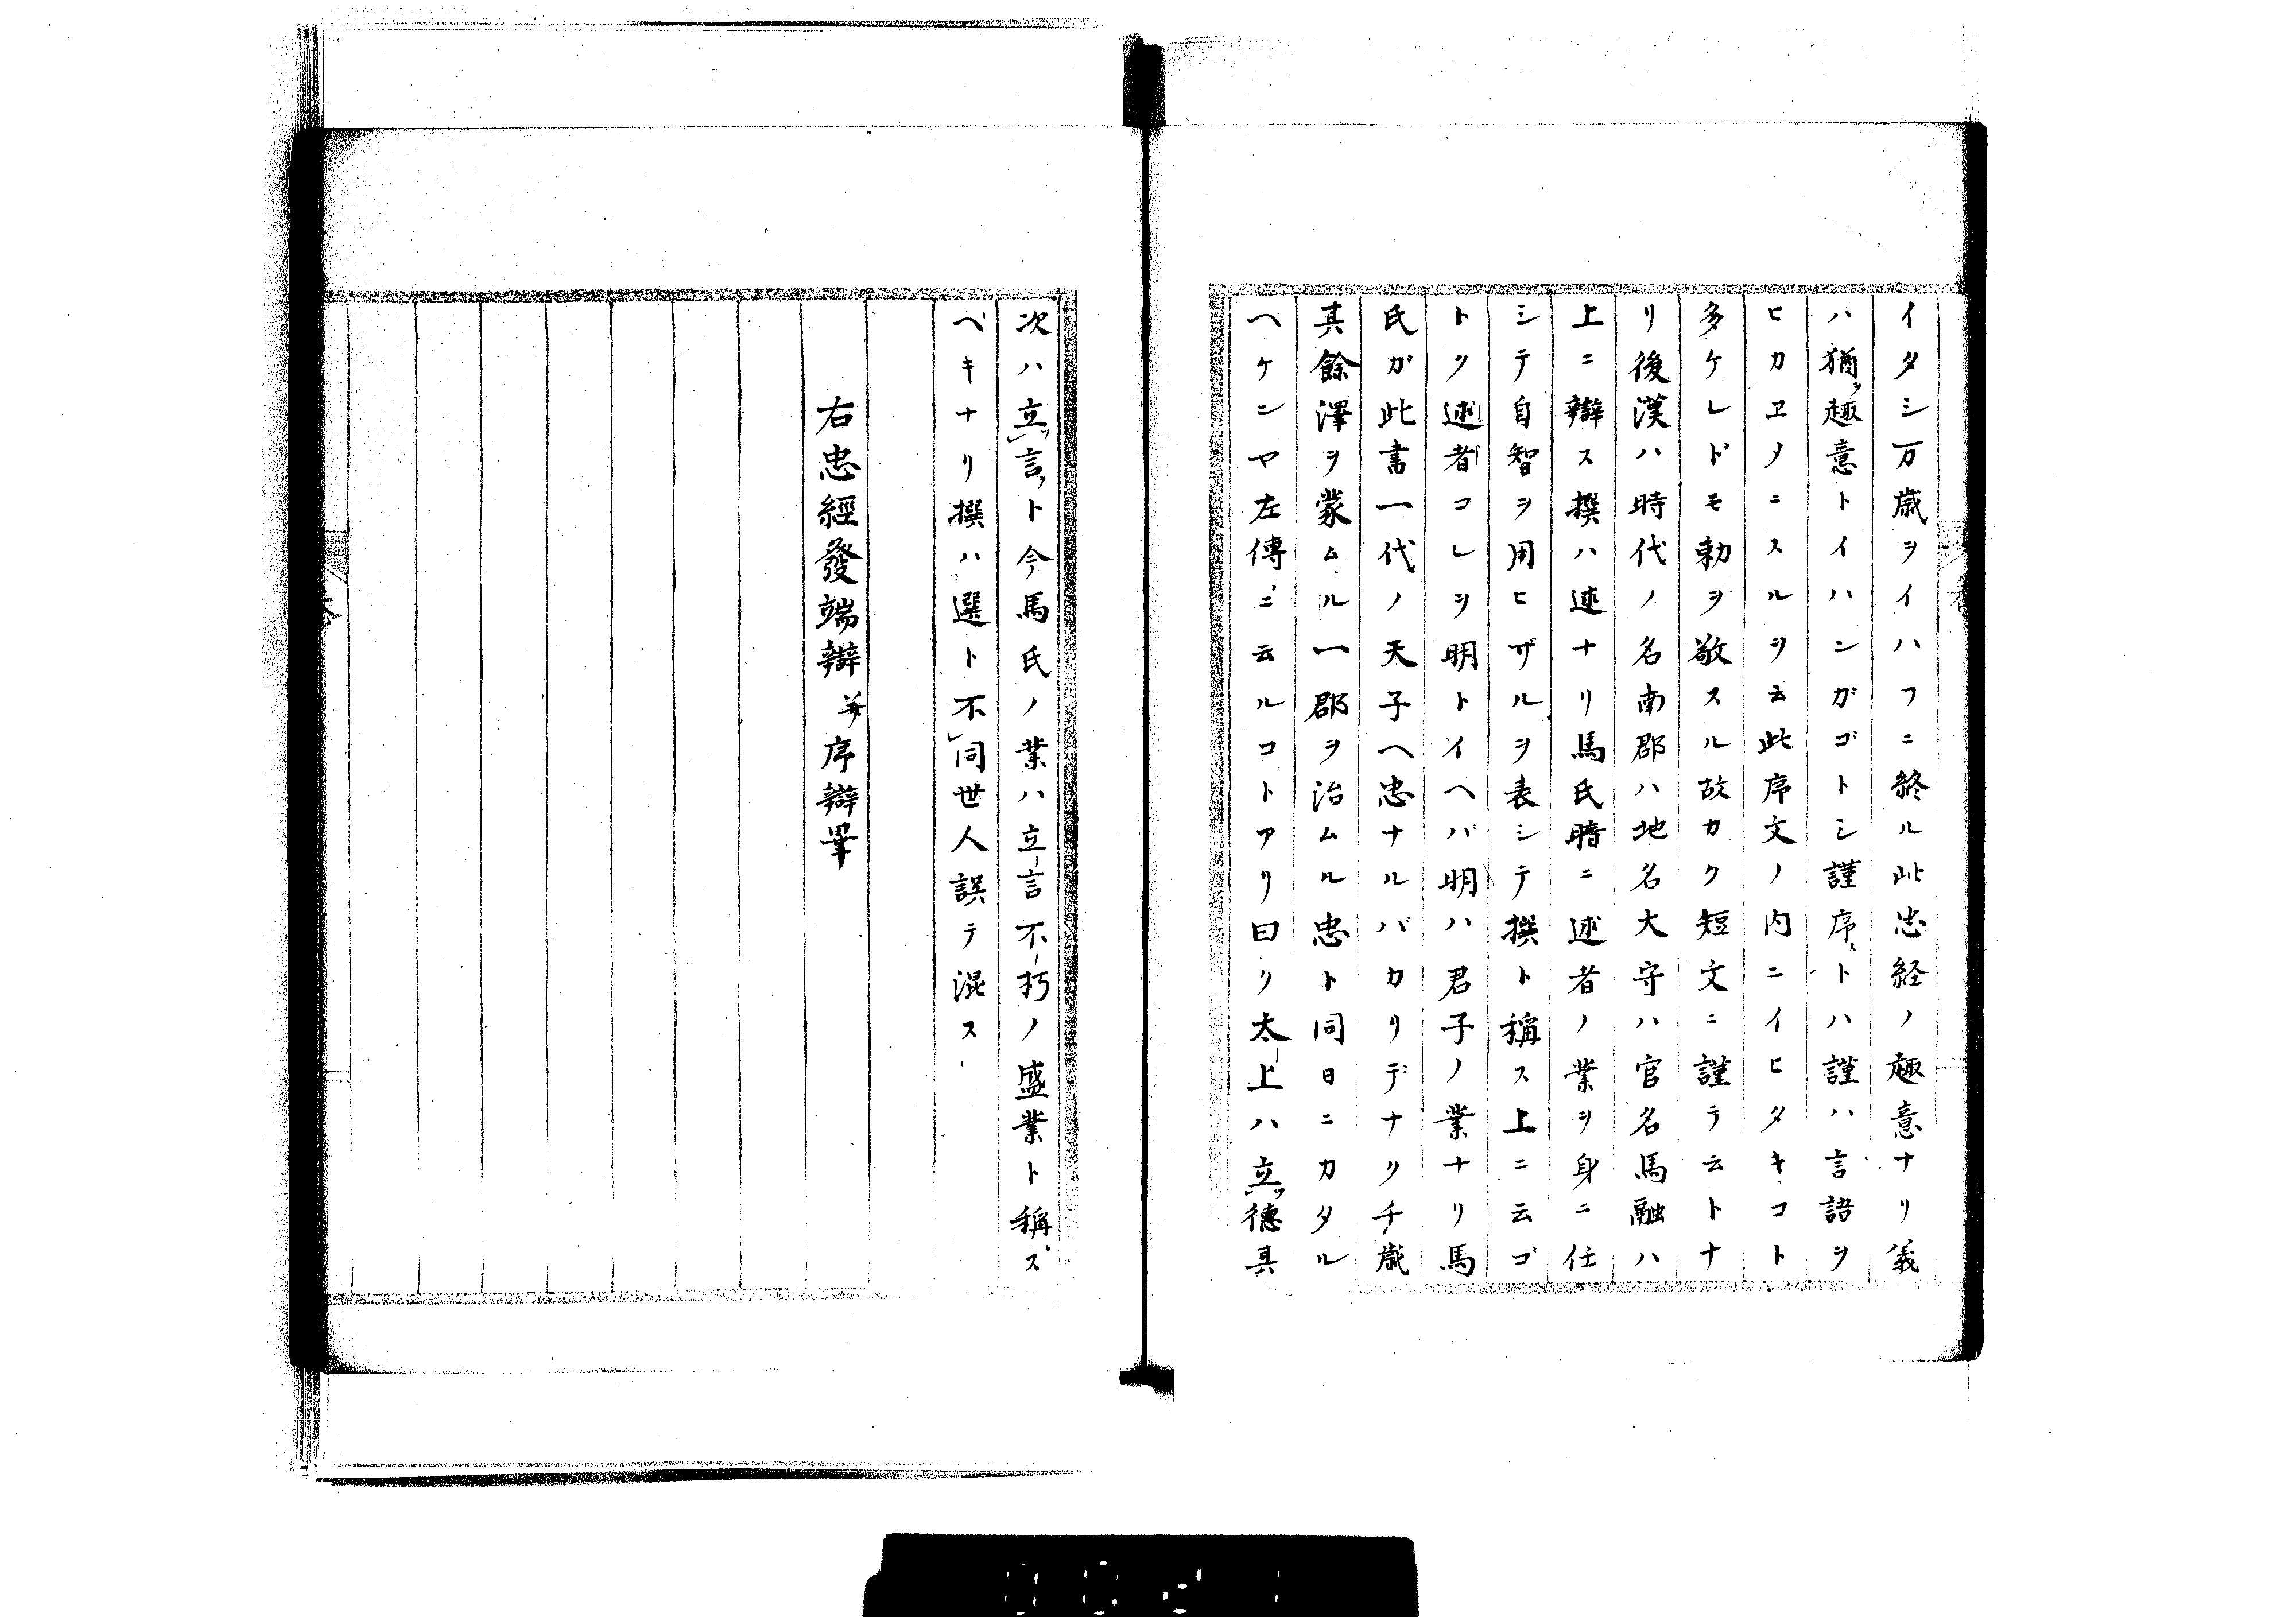 イタシ万歳ヲイハフニ終ル此忠経ノ趣意ナリ義
ハ猶ヲ趣意トイハンガゴトシ謹序ストハ謹ハ言語ヲ
ヒカヱメニスルヲ云此序文ノ内ニイヒタキコト
多ケレドモ勅ヲ敬スル故カク短文ニ謹テ云トナ
リ後漢ハ時代ノ名南郡ハ地名大守ハ官名馬融ハ
上ニ辯ス撰ハ述ナリ馬氏暗ニ述者ノ業ヲ身ニ任
シテ自智ヲ用ヒザルヲ表シテ撰ト稱ス上ニ云ゴ
トク述者コレヲ明トイヘバ明ハ君子ノ業ナリ馬
氏ガ此書一代ノ天子ヘ忠ナルバカリデナク千歳
其餘澤ヲ蒙ムル一郡ヲ治ムル忠ト同日ニカタル
ヘケンヤ左傳ニ云ルコトアリ曰ク太上ハ立ツ德其
次ハ立ツ言ヲト今馬氏ノ業ハ立言不朽ノ盛業ト稱ズ
ベキナリ撰ハ選ト不同世人誤テ混ス
右忠經發端辯并序辯畢